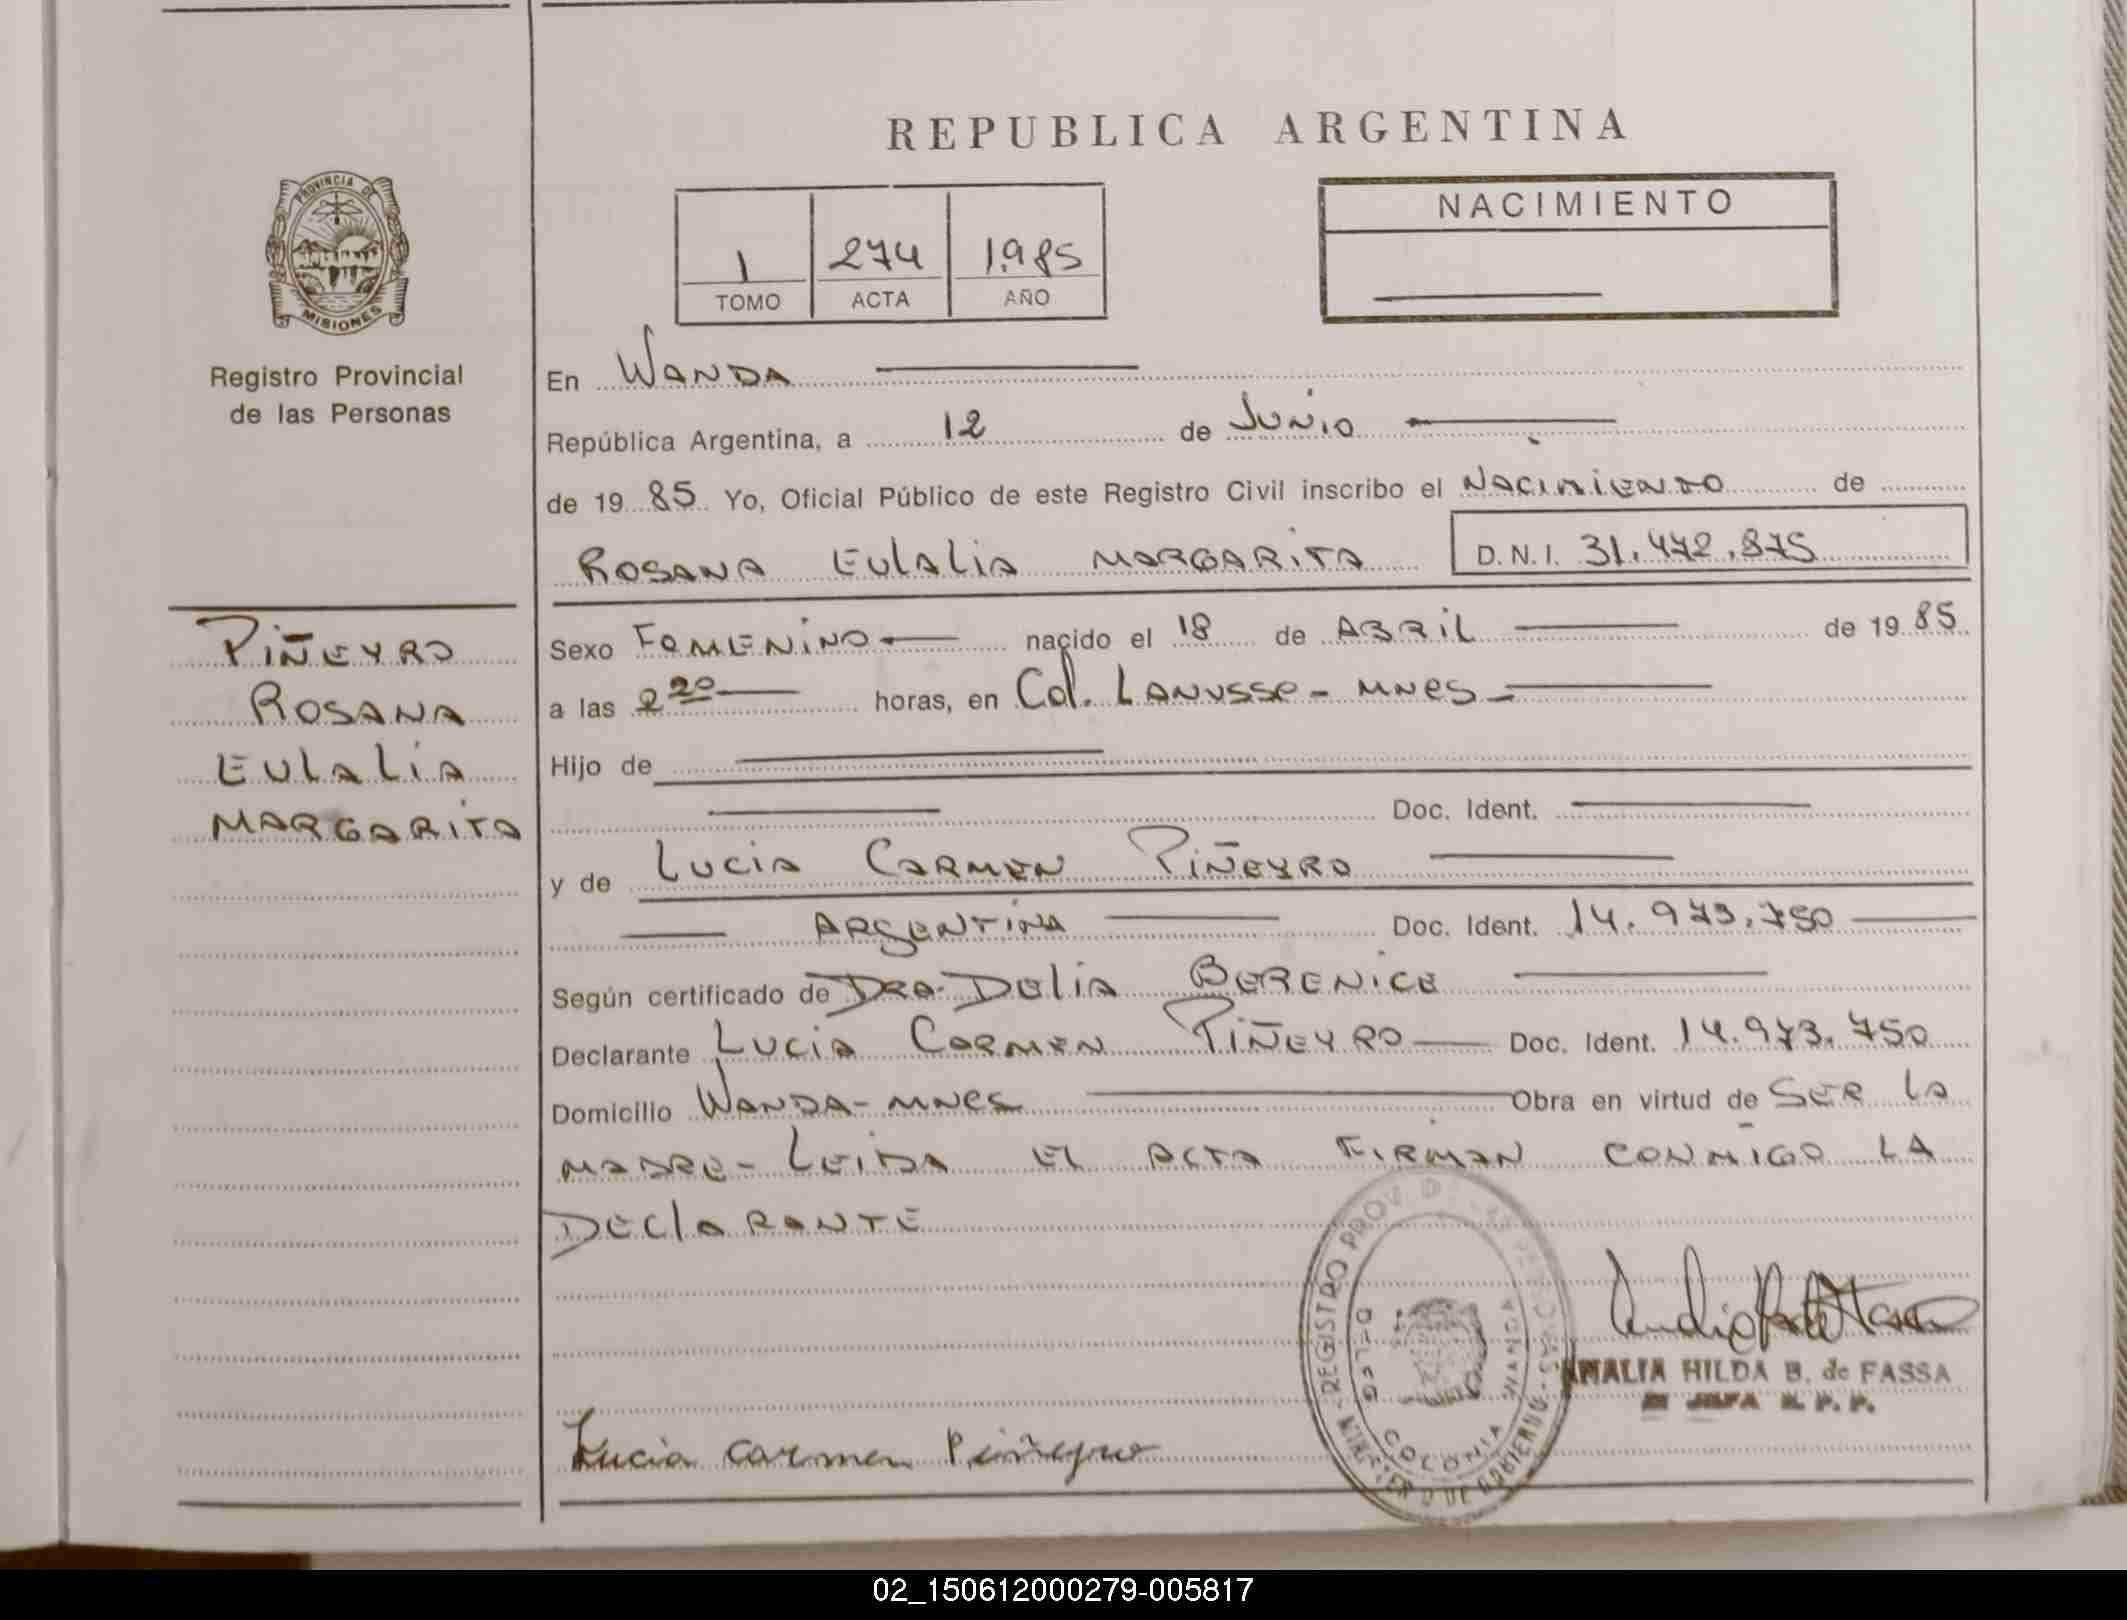 REPUBLICA ARGENTINA
PROVINCIA DE
MISIONES
Registro Provincial
de las Personas
1 274 1.985
TOMO ACTA AÑO
NACIMIENTO
En WANDA
República Argentina, a 12 de JUNIO
de 19 85 Yo, Oficial Público de este Registro Civil inscribo el NACIMIENTO de
ROSANA EULALIA MARGARITA D.N.I. 31.472.875
PIÑEYRO
ROSANA
EULALIA
MARGARITA
Sexo FEMENINO nacido el 18 de ABRIL de 19 85
a las 2 20 horas, en Col. LANUSSE - MNES -
Hijo de
Doc. Ident.
y de LUCIA CARMEN PIÑEYRO
ARGENTINA Doc. Ident. 14.973.750
Según certificado de DRA. DELIA BERENICE
Declarante LUCIA CARMEN PIÑEYRO Doc. Ident. 14.973.750
Domicilio WANDA - MNES Obra en virtud de SER LA
MADRE - LEIDA EL ACTA FIRMAN CONMIGO LA
DECLARANTE
REGISTRO PROV. DE LAS PERSONAS
MINISTERIO DE GOBIERNO
DELEG. COLONIA WANDA
AMALIA HILDA B. de FASSA
JEFA R. P. P.
Lucia Carmen Piñeyro
02_150612000279-005817